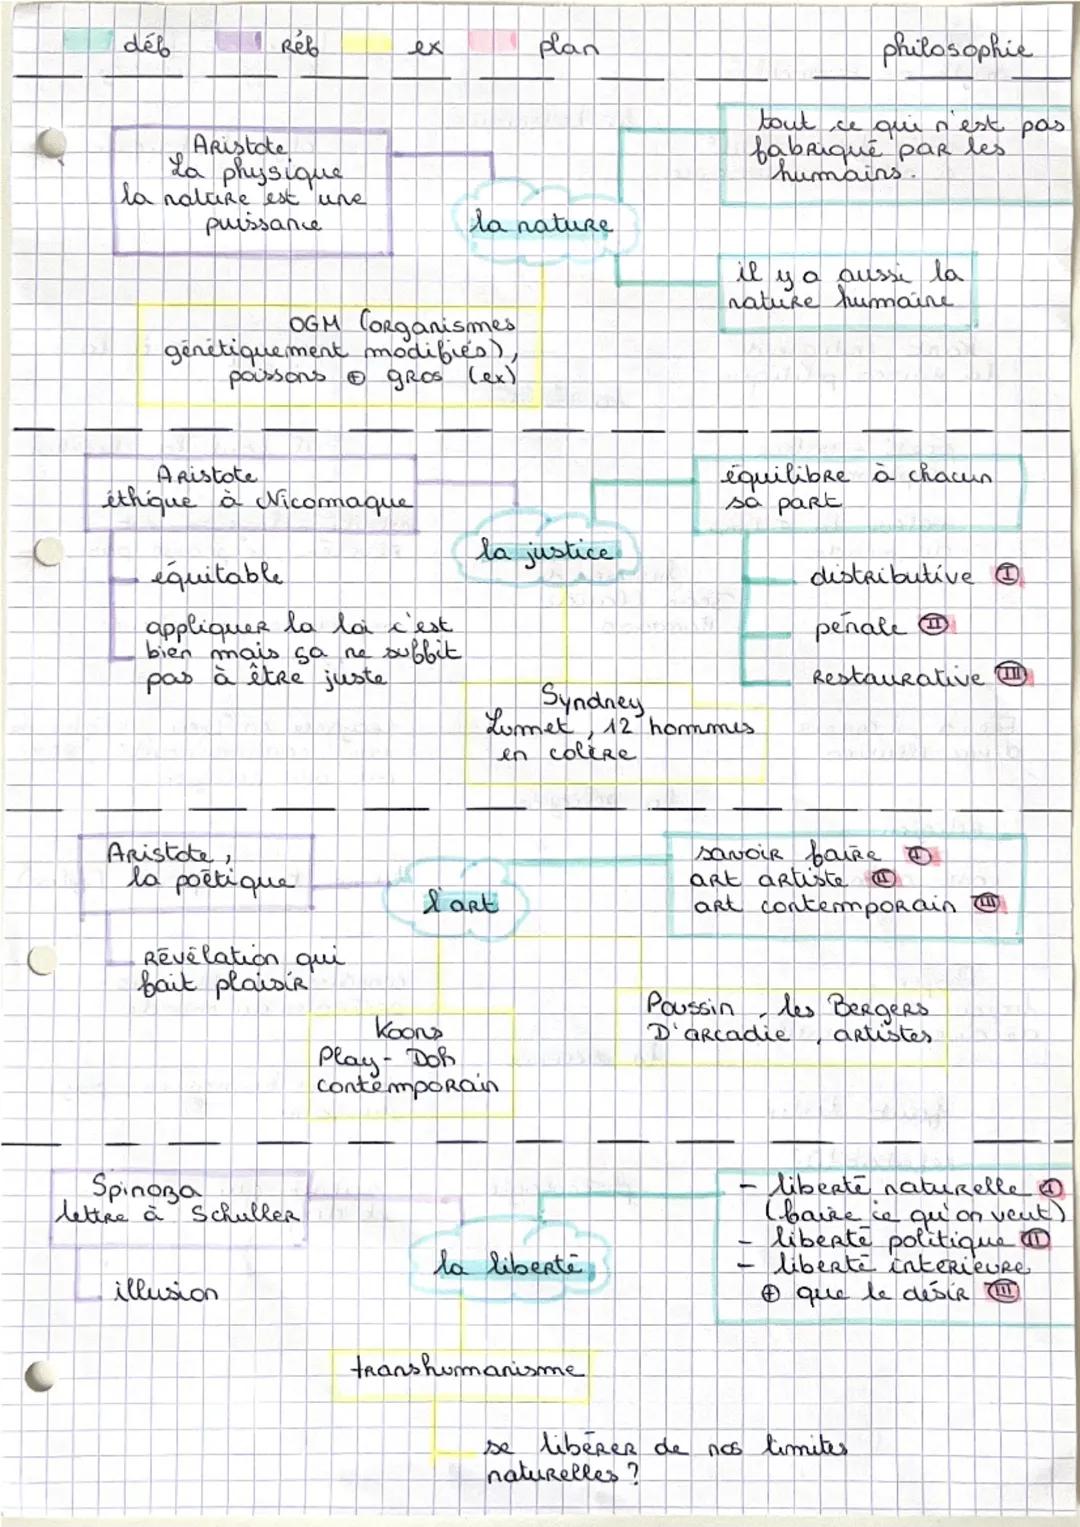 déf
Réf
ex
plan
philosophie
Aristote
La physique
la nature est une
puissance
la nature
tout ce qui n'est pas
fabriqué par les
humains.
il y a aussi la
nature humaine
OGM (organismes
génétiquement modifiés),
poissons ⊕ gros (ex)
Aristote
éthique à Nicomaque
équitable
appliquer la loi c'est
bien mais ça ne suffit
pas à être juste
la justice
équilibre à chacun
sa part
distributive I
pénale II
Restaurative III
Syndney
Lumet, 12 hommes
en colère
Aristote,
la poétique
Révélation qui
fait plaisir
l'art
savoir faire I
art artiste II
art contemporain III
Koons
Play-Doh
contemporain
Poussin, les Bergers
D'arcadie, artistes
Spinoza
lettre à Schuller
illusion
la liberté
- liberté naturelle I
(faire ce qu'on veut)
- liberté politique II
- liberté intérieure
⊕ que le désir III
transhumanisme
se libérer de nos limites
naturelles ?